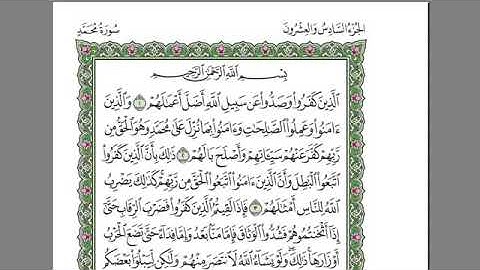 الجزء السادس والعشرون
سورة محمد
بِسْمِ ٱللَّهِ ٱلرَّحْمَٰنِ ٱلرَّحِيمِ
ٱلَّذِينَ كَفَرُوا۟ وَصَدُّوا۟ عَن سَبِيلِ ٱللَّهِ أَضَلَّ أَعْمَٰلَهُمْ ١ وَٱلَّذِينَ
ءَامَنُوا۟ وَعَمِلُوا۟ ٱلصَّٰلِحَٰتِ وَءَامَنُوا۟ بِمَا نُزِّلَ عَلَىٰ مُحَمَّدٍ وَهُوَ ٱلْحَقُّ مِن
رَّبِّهِمْ كَفَّرَ عَنْهُمْ سَيِّـَٔاتِهِمْ وَأَصْلَحَ بَالَهُمْ ٢ ذَٰلِكَ بِأَنَّ ٱلَّذِينَ كَفَرُوا۟
ٱتَّبَعُوا۟ ٱلْبَٰطِلَ وَأَنَّ ٱلَّذِينَ ءَامَنُوا۟ ٱتَّبَعُوا۟ ٱلْحَقَّ مِن رَّبِّهِمْ كَذَٰلِكَ يَضْرِبُ
ٱللَّهُ لِلنَّاسِ أَمْثَٰلَهُمْ ٣ فَإِذَا لَقِيتُمُ ٱلَّذِينَ كَفَرُوا۟ فَضَرْبَ ٱلرِّقَابِ حَتَّىٰٓ
إِذَآ أَثْخَنتُمُوهُمْ فَشُدُّوا۟ ٱلْوَثَاقَ فَإِمَّا مَنًّۢا بَعْدُ وَإِمَّا فِدَآءً حَتَّىٰ تَضَعَ ٱلْحَرْبُ
أَوْزَارَهَا ذَٰلِكَ وَلَوْ يَشَآءُ ٱللَّهُ لَٱنتَصَرَ مِنْهُمْ وَلَٰكِن لِّيَبْلُوَا۟ بَعْضَكُم